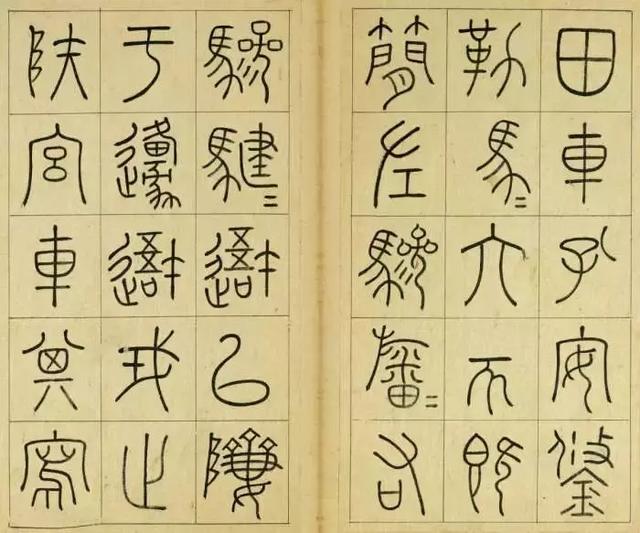 田車孔安鋚
勒馬=六既
簡左驂旛=右
驂騝=避以隮
于邍避戎止
陕宮車其寫